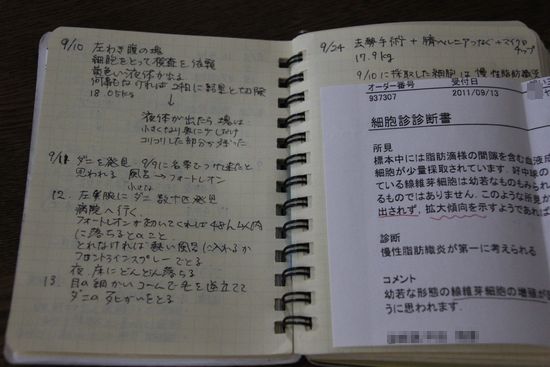 9/10 左わき腹の塊
細胞をとって検査を依頼
黄色い液体が出る
何もなければ2週に結果とて切除
18.05kg
↓
液体が出たら塊は
小さくなり奥に少しだけ
コリコリした部分が残った
9/11 ダニを発見 9/9に名栗でつけて来たと
思われる 風呂→フォートレオン
小さな
12. 左裏腹にダニ数十匹発見
病院へ行く。
フォートレオンが効いてくれば48h以内
に落ちるとのこと
とれなければ熱い風呂に入れるか
フロントラインスプレーでとる
夜、床にどんどん落ちる
13. 目の細かいコームで毛を逆立てて
ダニの死がいをとる
9/24 去勢手術+臍ヘルニアつなぐ+マイクロ
チップ
17.9kg
9/10に採取した細胞は慢性脂肪織炎
オーダー番号 受付日
937307 2011/09/13
細胞診診断書
所見
標本中には脂肪滴様の間隙を含む血液成
細胞が少量採取されています。好中球の
ている線維芽細胞は幼若なものもみられ
るものではありません。このような所見か
出されず、拡大傾向を示すようであれば
診断
慢性脂肪織炎が第一に考えられる
コメント
幼若な形態の線維芽細胞の増殖が
うに思われます.